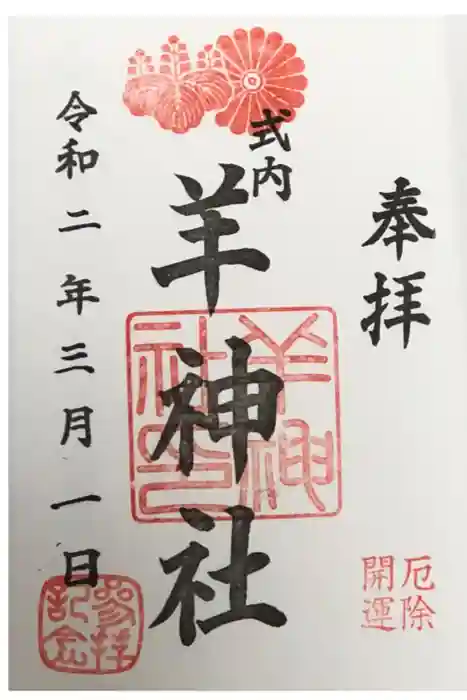 奉拝
厄除
開運
式内
羊神社
羊神社印
令和二年三月一日
参拝記念